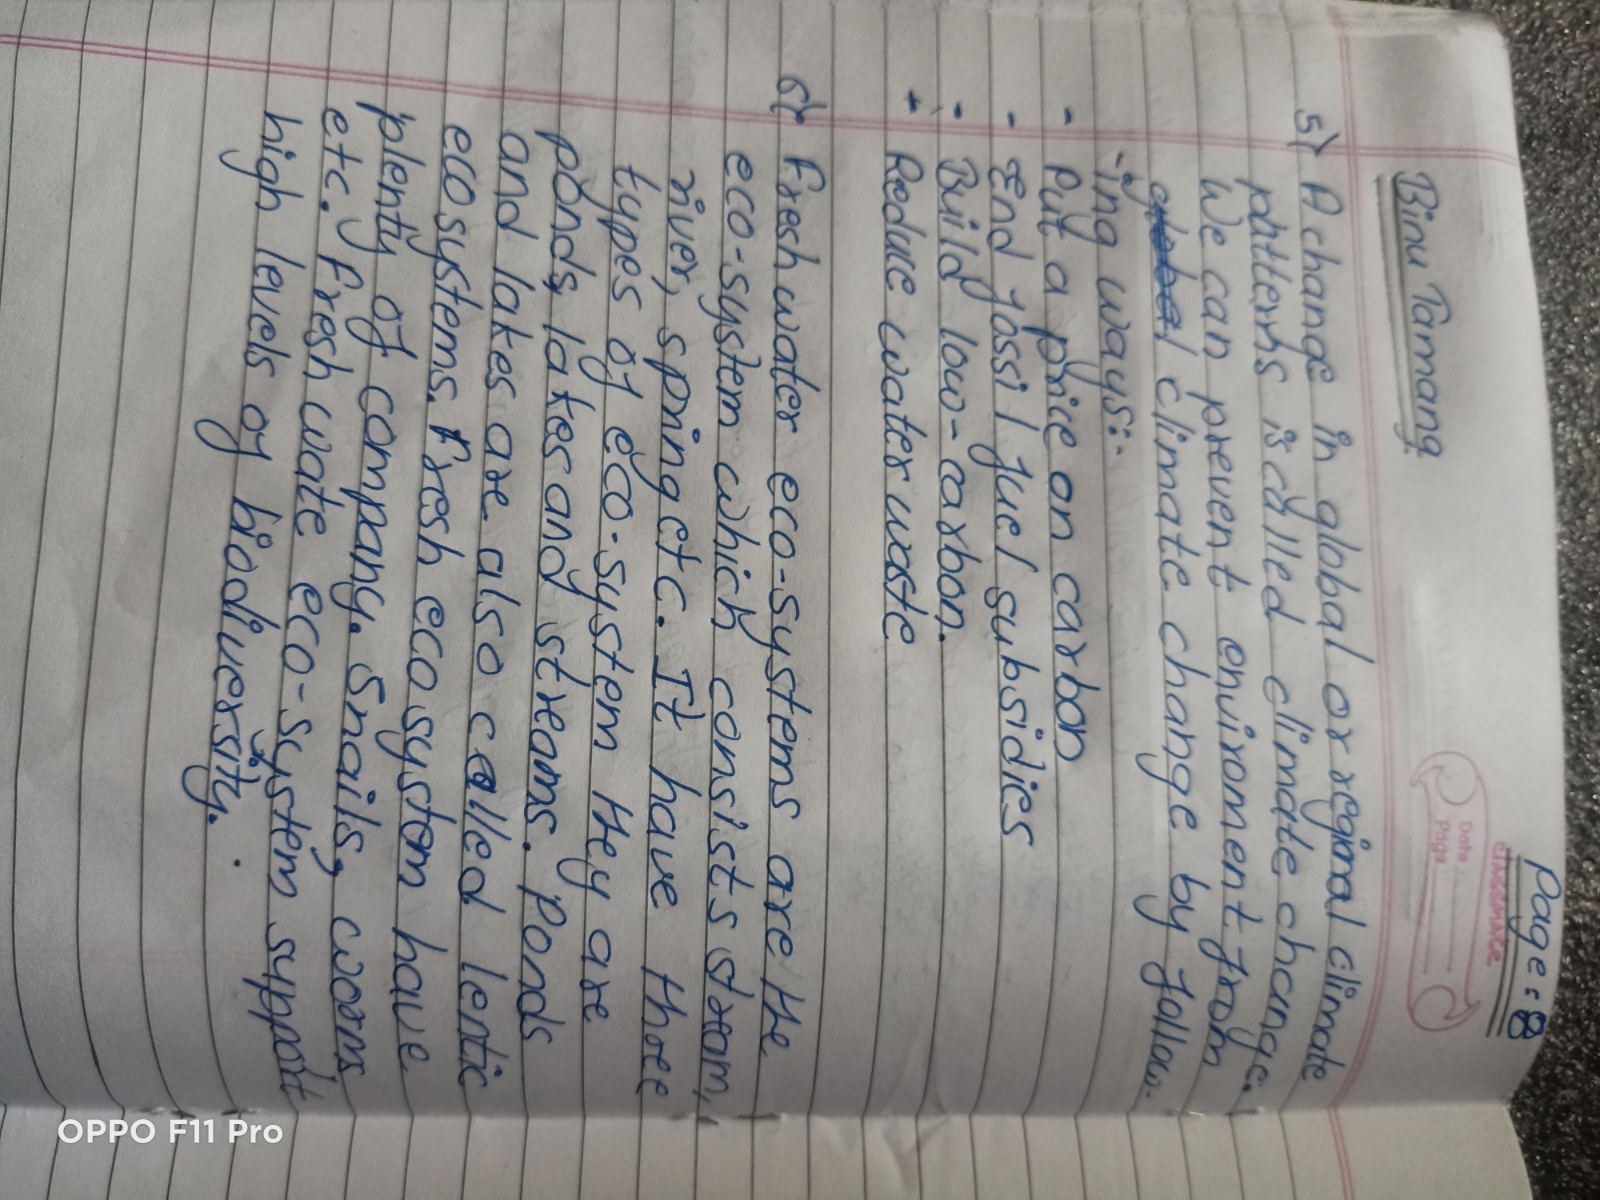 Page: 8
CLASSMATE
Date
Page
Binu Tamang
5) A change in global or reginal climate
patterns is called climate change.
We can prevent enviroment from
climate change by follow-
-ing ways:-
- Put a price on carbon
- End fossil fuel subsidies
- Build low-carbon.
+ Reduce water waste
6) Fresh water eco-systems are the
eco-system which consists stream,
river, spring etc. It have three
types of eco-system they are
ponds, lakes and streams. Ponds
and lakes are also called lentic
ecosystems. Fresh ecosystem have
plenty of company. Snails, worms
etc. Fresh wate eco-system support
high levels of biodiversity.
OPPO F11 Pro